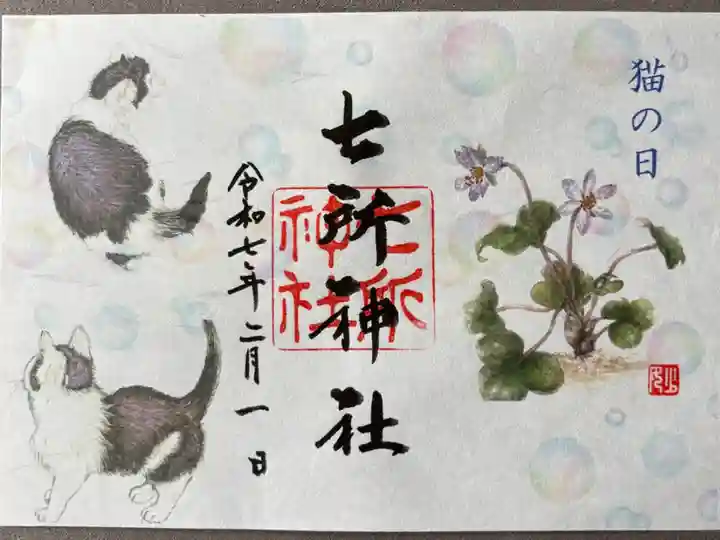 猫の日
七所神社
七所
神社
令和七年二月一日